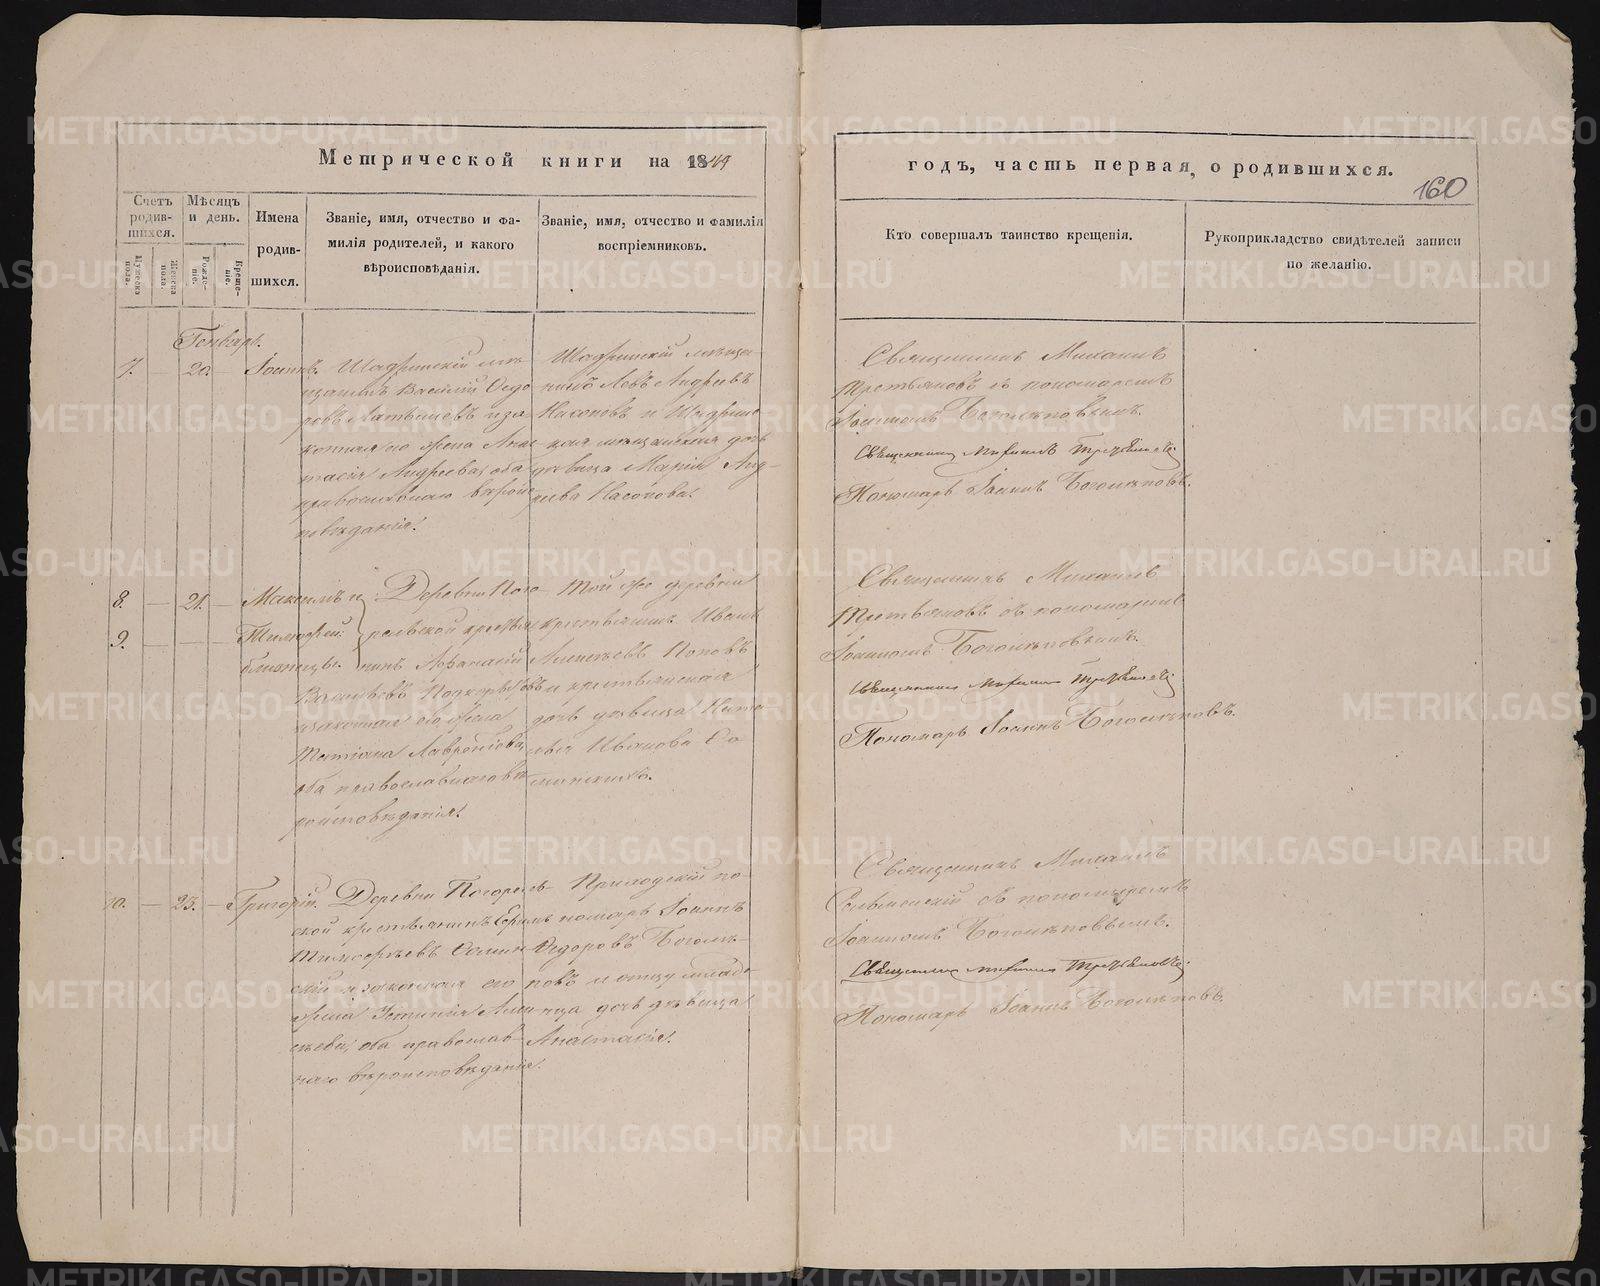 METRIKI.GASO-URAL.RU
Метрической книги на 1849
годъ, часть первая, о родившихся.
160
Счетъ родив-шихся.
Мѣсяцъ и день.
Имена родив-шихся.
Званіе, имя, отчество и фа-
милія родителей, и какого
вѣроисповѣданія.
Званіе, имя, отчество и фамилія
воспріемниковъ.
Мужеска пола.
Женска пола.
Рожде-ніе.
Креще-ніе.
Кто совершалъ таинство крещенія.
Рукоприкладство свидѣтелей записи
по желанію.
Генварь.
7. — 20. — Іоаннъ.
Шадринскій мѣ-
щанинъ Василій Ѳедо
ровъ и за
конная его жена Анас
тасія Андреева, оба
православнаго вѣроис
повѣданія.
Шадринскій мѣща-
нинъ Левъ Андреевъ
Насоновъ и Шадрин
ская мѣщанская дочь
дѣвица Марія Анд-
реева Насонова.
Священникъ Михаилъ
Третьяковъ съ пономаремъ
Іоанномъ Боголѣповымъ.
Священникъ Михаилъ Третьяковъ
Пономарь Іоаннъ Боголѣповъ.
8. — 21. — Максимъ и
9. — Тимофей:
близнецы.
Деревни Пого
рельской крестья
нинъ Афанасій
Васильевъ
законная его жена
Татіана Лаврентіева,
оба православнаго вѣ
роисповѣданія.
Той же деревни
крестьянинъ Иванъ
Алексѣевъ Поповъ
и крестьянская
дочь дѣвица Ната
лія Иванова
Священникъ Михаилъ
Третьяковъ съ пономаремъ
Іоанномъ Боголѣповымъ.
Священникъ Михаилъ Третьяковъ
Пономарь Іоаннъ Боголѣповъ.
10. — 23. — Григорій.
Деревни Погорель-
ской крестьянинъ
Тимофеевъ
и законная его
жена Устинія Алек
сѣева, оба православ-
наго вѣроисповѣданія.
Приходскій по-
номарь Іоаннъ
Ѳедоровъ Боголѣ-
повъ и
дочь дѣвица
Анастасія.
Священникъ Михаилъ
съ пономаремъ
Іоанномъ Боголѣповымъ.
Священникъ Михаилъ Третьяковъ
Пономарь Іоаннъ Боголѣповъ.